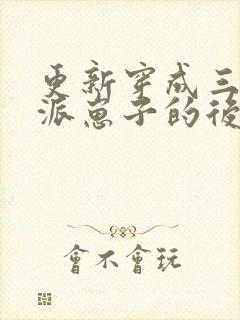 更新穿成三
派崽子的後
會不會玩